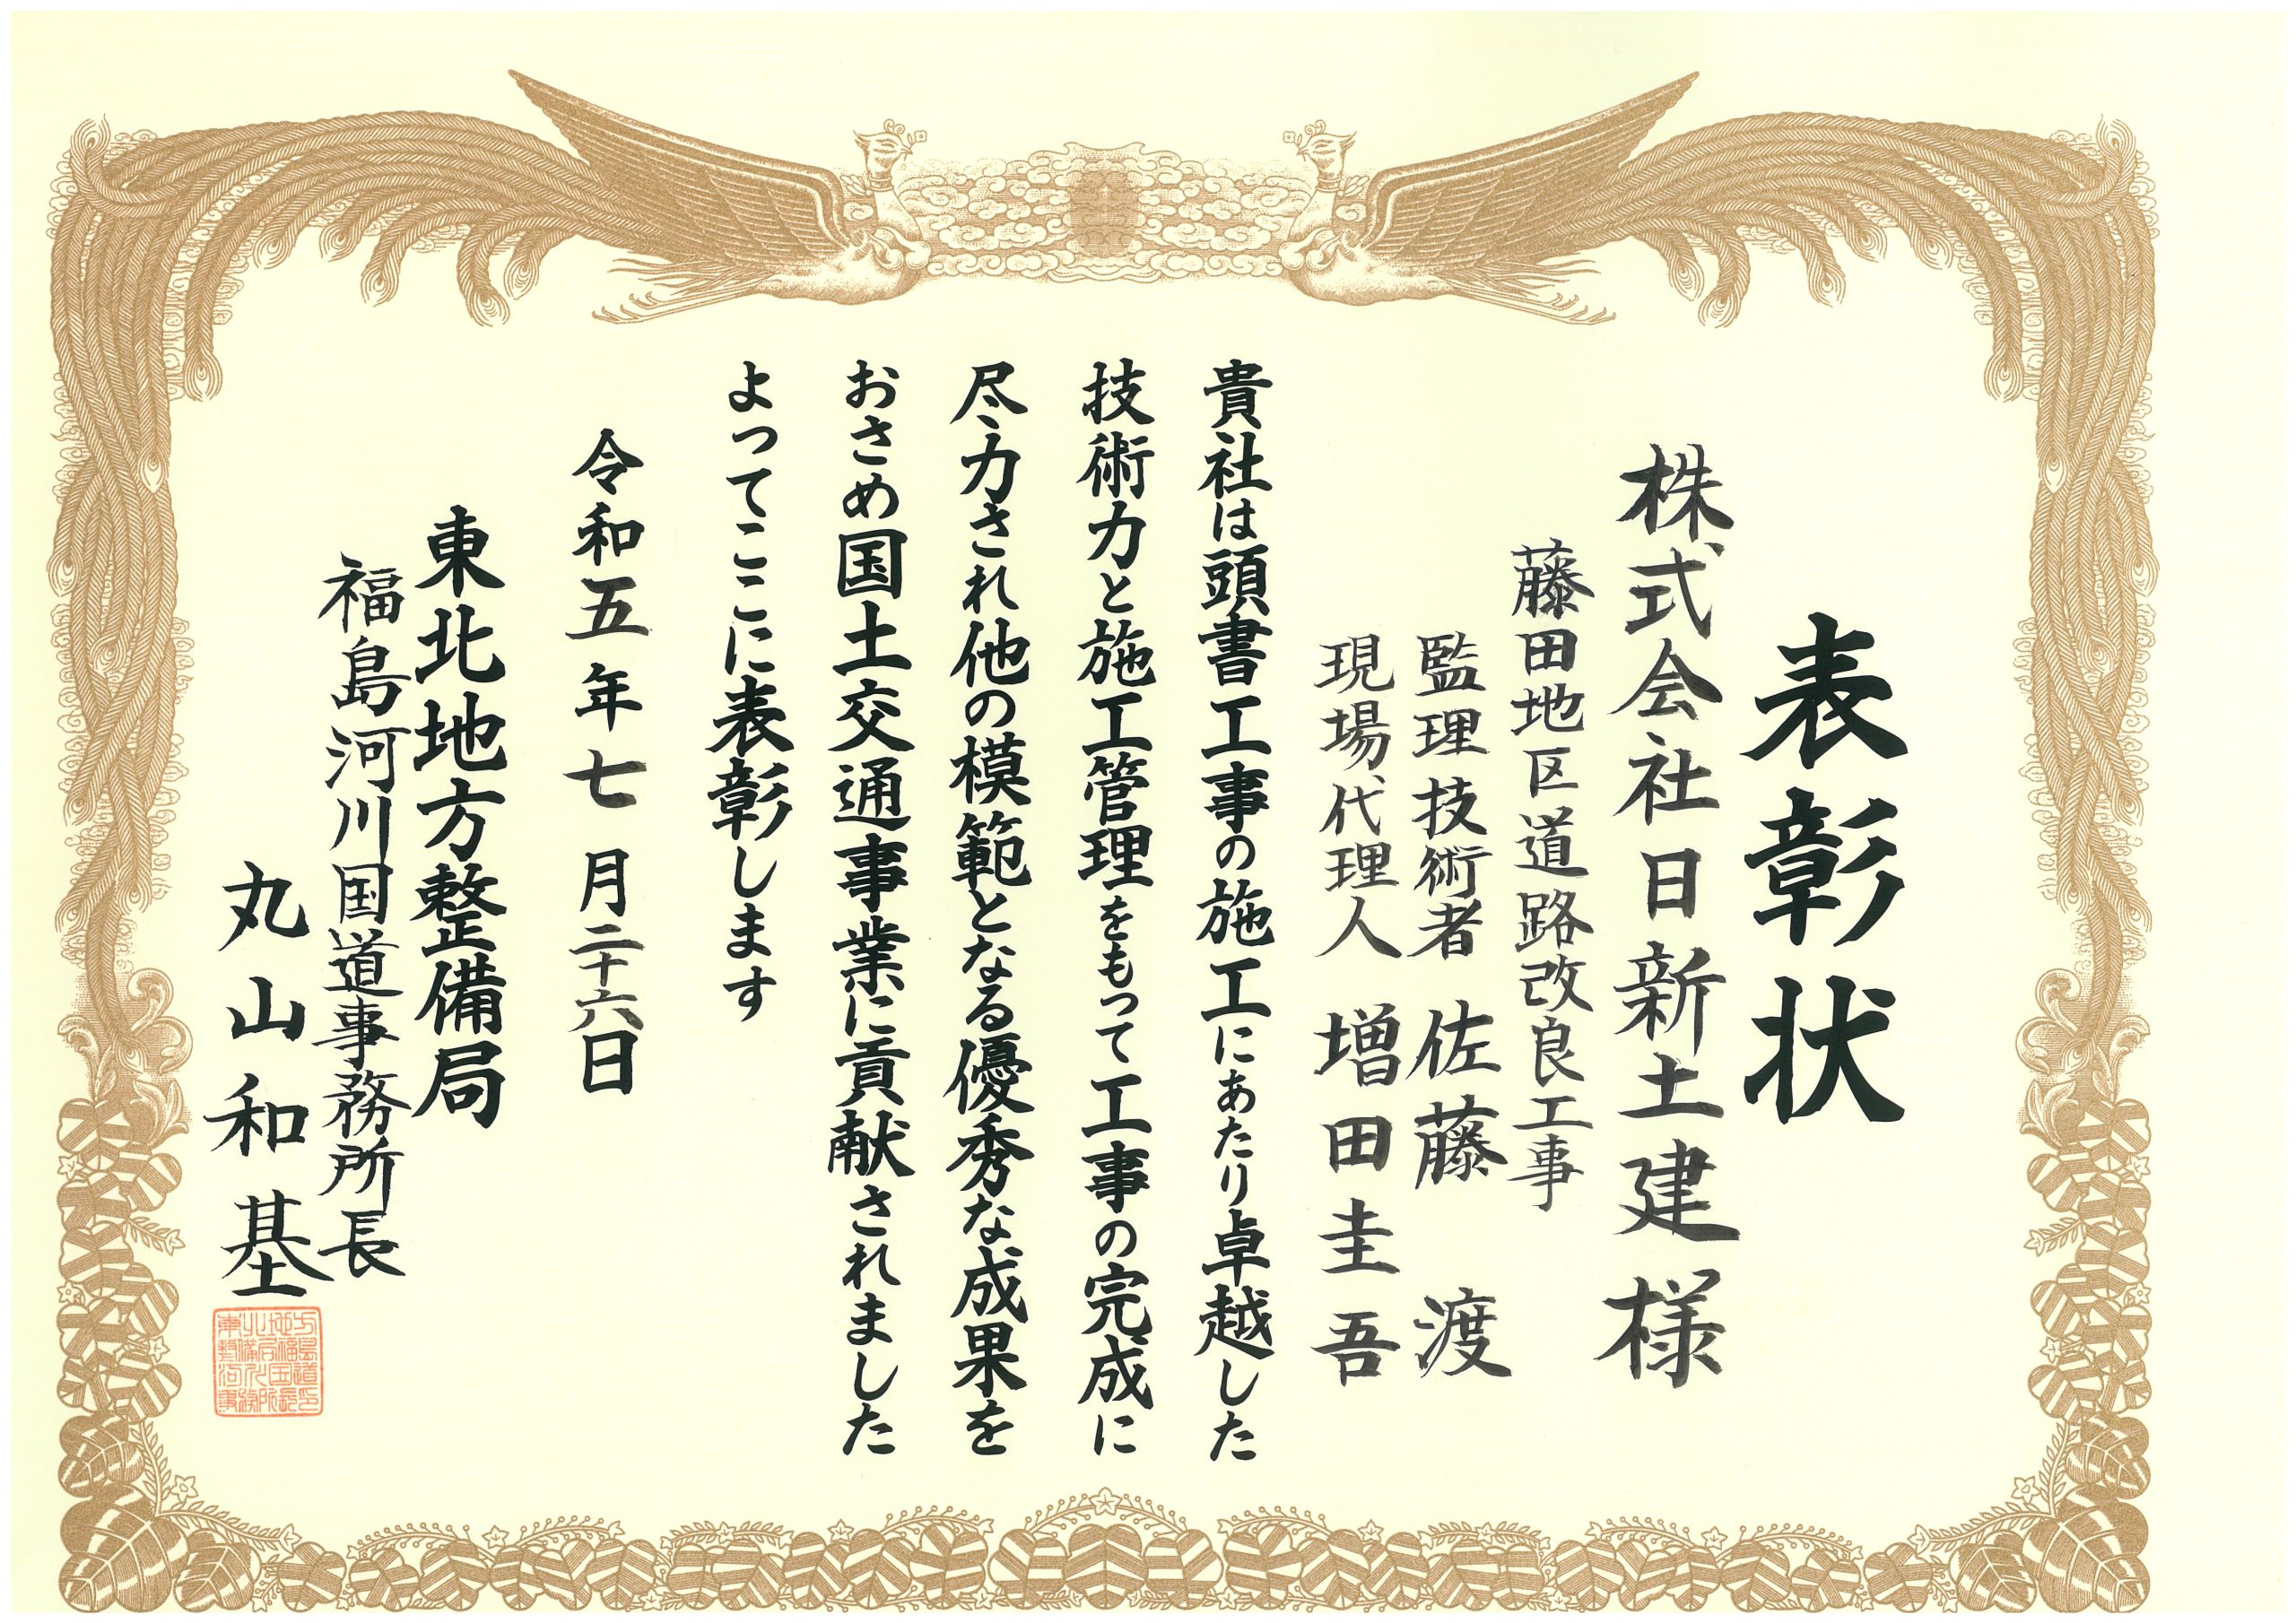 表彰状
株式会社日新土建様
藤田地区道路改良工事
監理技術者 佐藤 渡
現場代理人 増田圭吾
貴社は頭書工事の施工にあたり卓越した
技術力と施工管理をもって工事の完成に
尽力され他の模範となる優秀な成果を
おさめ国土交通事業に貢献されました
よってここに表彰します
令和五年七月二十六日
東北地方整備局
福島河川国道事務所長
丸山和基